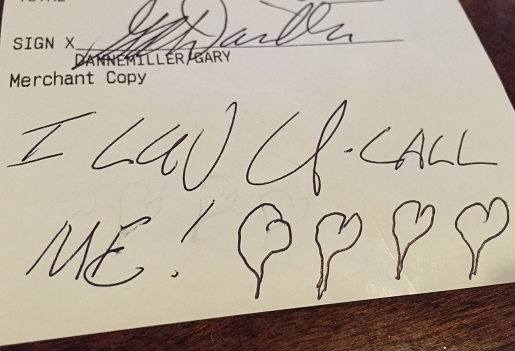 SIGN X
DANNEMILLER/GARY
Merchant Copy
I LUV U - CALL
ME!